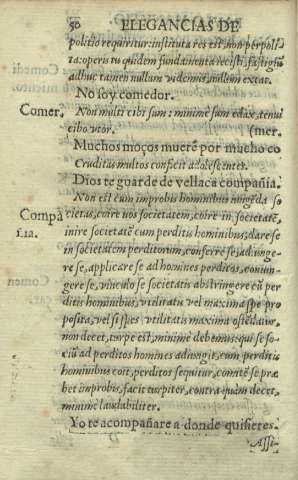 50 ELEGANCIAS DE
politiõ requiritur: instituta res est, non perpoli-
ta: operis tu quidem fundamenta iecisti, fastigiũ
adhuc tamen nullum videmus, nullum extat.
No soy comedor.
Comer. Non multi cibi sum: minimè sum edax, tenui
cibo vtor. (mer.
Muchos moços muerẽ por mucho co
Cruditas multos conficit adolescentes.
Dios te guarde de vellaca compañia.
Non est cum improbis hominibus iungẽda so
Compa cietas, coire vos societatem, coire in societatẽ,
ñia. inire societatẽ cum perditis hominibus, dare se
in societatem perditorum, conferre se, adiunge-
re se, applicare se ad homines perditos, coniun-
gere se, vinculo se societatis abstringere cũ per
ditis hominibus, vtilitatis vel maxima spe pro
posita, vel si spes vtilitatis maxima ostẽdatur,
non decet, turpe est, minimè debemus: qui se so-
ciũ ad perditos homines adiungit, cum perditis
hominibus coit, perditos sequitur, comitẽ se præ
bet improbis, facit turpiter, contra quàm decet,
minimè laudabiliter.
Yo te acompañare a donde quisieres.
Assi-